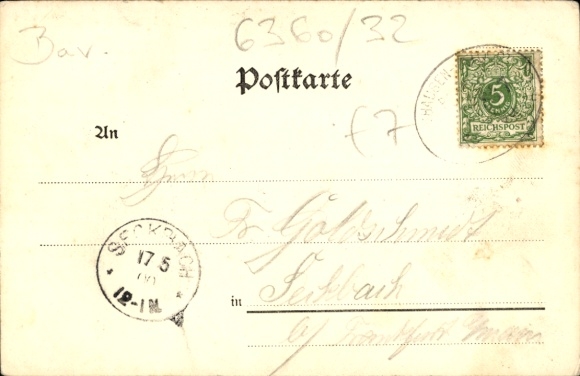 Bav.
6360/32
Postkarte
5
REICHSPOST
£7
An
Herrn
Fr. Goldschmidt
SECKBACH
17 5
12-1N.
in Seckbach
b/ Frankfurt Main